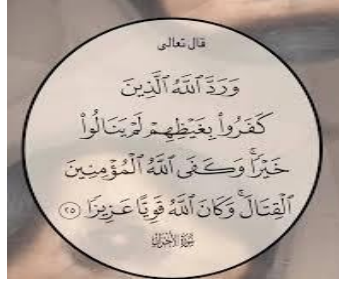 قال تعالى
وَرَدَّ ٱللَّهُ ٱلَّذِينَ
كَفَرُوا۟ بِغَيْظِهِمْ لَمْ يَنَالُوا۟
خَيْرًا ۚ وَكَفَى ٱللَّهُ ٱلْمُؤْمِنِينَ
ٱلْقِتَالَ ۚ وَكَانَ ٱللَّهُ قَوِيًّا عَزِيزًا ٢٥
سُورَةُ الأَحْزَابِ